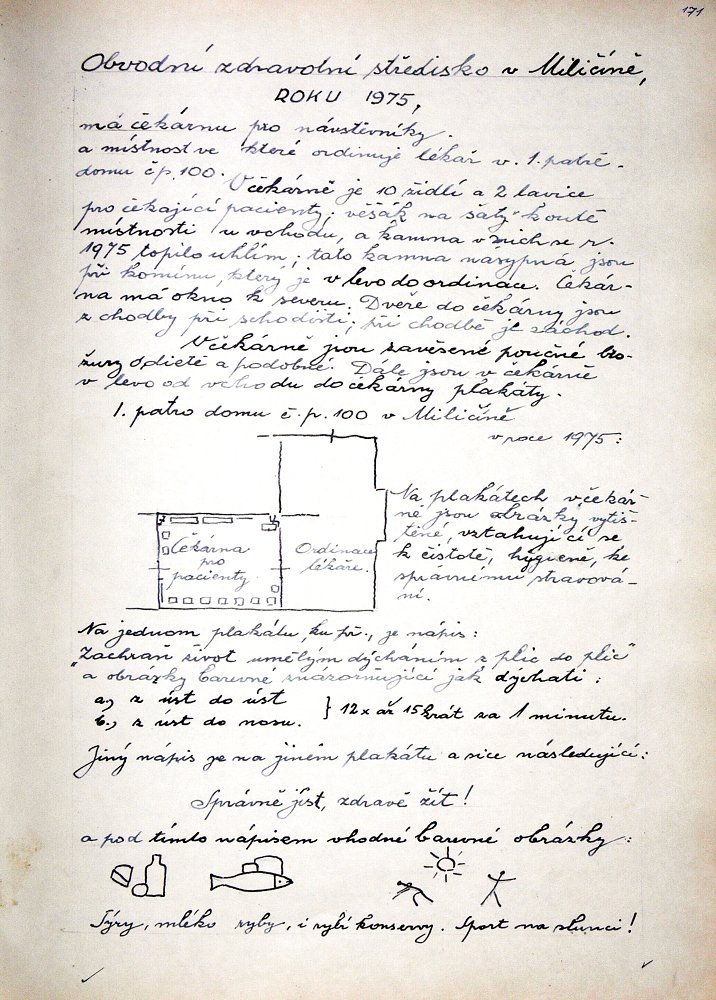 171
Obvodní zdravotní středisko v Miličíně,
ROKU 1975,
má čekárnu pro návštěvníky.
a místnost ve které ordinuje lékář v 1. patře.
domu čp. 100. V čekárně je 10 židlí a 2 lavice
pro čekající pacienty; věšák na šaty koutě
místnosti u vchodu, a kamna v nich se r.
1975 topilo uhlím; tato kamna násypná jsou
při komínu, který je v levo do ordinace. Čekár-
na má okno k severu. Dveře do čekárny jsou
z chodby při schodišti; při chodbě je záchod.
V čekárně jsou zavěsené poučné bro-
žury o dietě a podobné. Dále jsou v čekárně
v levo od vchodu do čekárny plakáty.
1. patro domu č.p. 100 v Miličíně
v roce 1975:
Na plakátech v čekár-
ně jsou obrázky vytiš-
těné, vztahující se
k čistotě, hygieně, ke
správnému stravová-
ní.
Čekárna
pro
pacienty
Ordinace
lékaře.
Na jednom plakátu, ku př., je nápis:
"Zachraň život umělým dýcháním z plic do plic"
a obrázky barevné znázorňující jak dychati:
a., z úst do úst
b., z úst do nosu. } 12x až 15krát za 1 minutu.
Jiný nápis je na jiném plakátu a sice následující:
Správně jíst, zdravě žít!
a pod tímto nápisem vhodné barevné obrázky:
Sýry, mléko ryby, i rybí konservy. Sport na slunci!